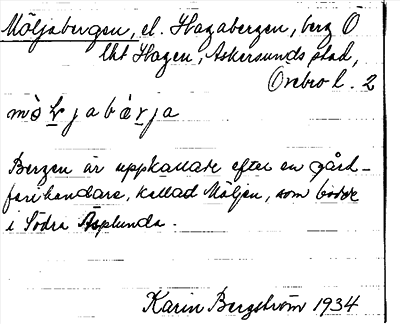 Möljabergen, el. Hagabergen, berg O
lht Hagen, Askersunds stad,
Örebro l. 2
mö̀ljabæ̀rja
Bergen är uppkallade efter en gård-
farihandare, kallad Möljen, som bodde
i Södra Åsplunda.
Karin Bergström 1934